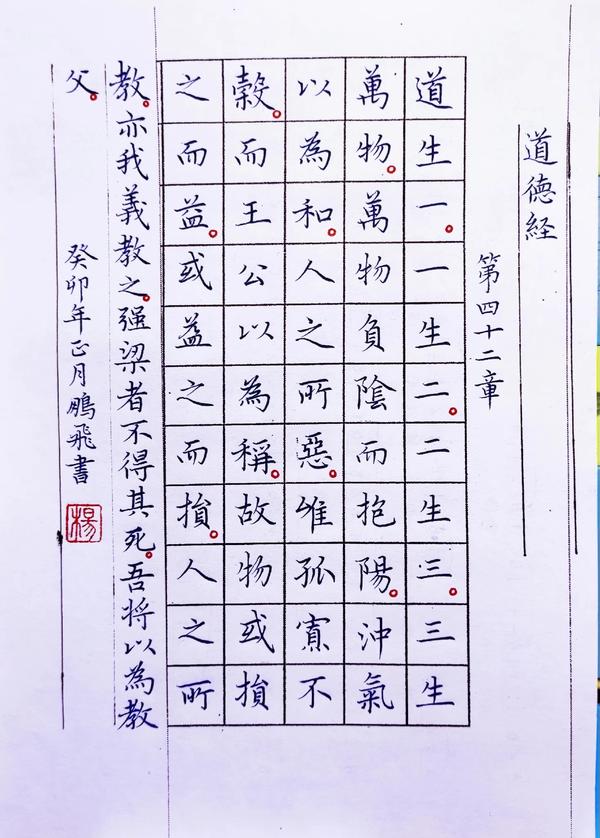 道德経
第四十二章
道生一。一生二。二生三。三生
萬物。萬物負陰而抱陽。沖氣
以為和。人之所惡。唯孤寡不
穀。而王公以為稱。故物或損
之而益。或益之而損。人之所
教。亦我義教之。强梁者不得其死。吾将以為教
父。
癸卯年正月鵬飛書
楊